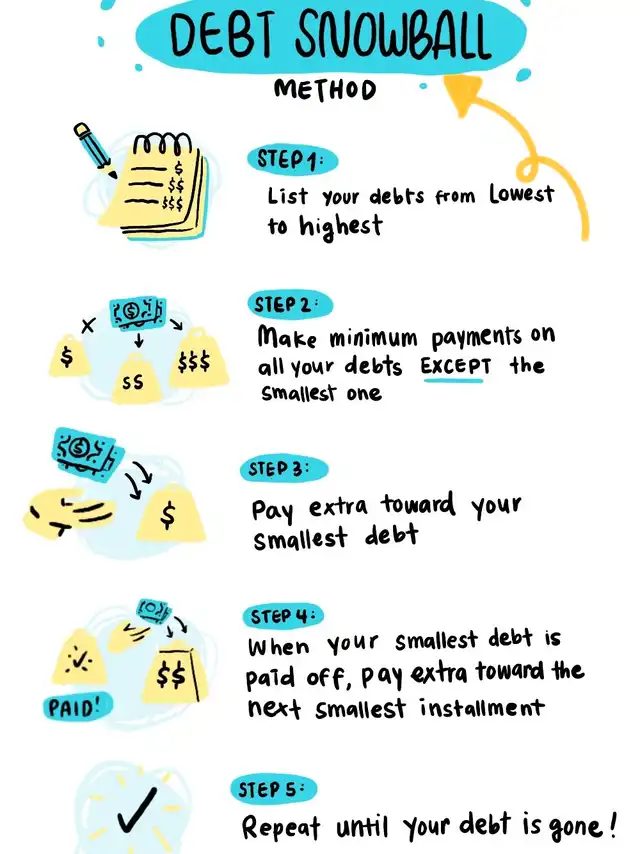 DEBT SNOWBALL
METHOD
$
$$
$$$
STEP 1:
List your debts from Lowest
to highest
$
$
$$
$$$
STEP 2:
Make minimum payments on
all your debts EXCEPT the
smallest one
$
$
STEP 3:
Pay extra toward your
smallest debt
$$
PAID!
STEP 4:
When your smallest debt is
paid off, pay extra toward the
next smallest installment
STEP 5:
Repeat until your debt is gone!